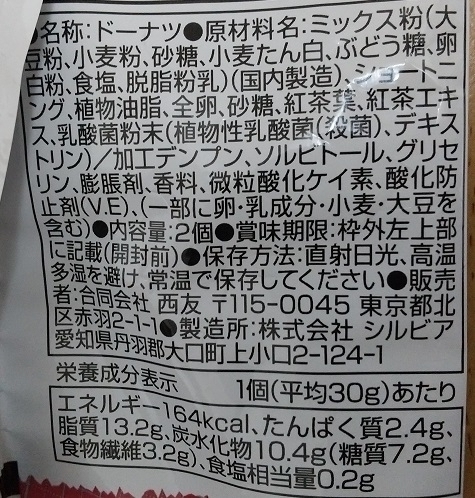 ●名称:ドーナツ●原材料名:ミックス粉(大
豆粉、小麦粉、砂糖、小麦たん白、ぶどう糖、卵
白粉、食塩、脱脂粉乳)(国内製造)、ショートニ
ング、植物油脂、全卵、砂糖、紅茶葉、紅茶エキ
ス、乳酸菌粉末(植物性乳酸菌(殺菌)、デキス
トリン)/加工デンプン、ソルビトール、グリセ
リン、膨脹剤、香料、微粒酸化ケイ素、酸化防
止剤(V.E)、(一部に卵・乳成分・小麦・大豆を
含む)●内容量:2個●賞味期限:枠外左上部
に記載(開封前)●保存方法:直射日光、高温
多湿を避け、常温で保存してください●販売
者:合同会社 西友 〒115-0045 東京都北
区赤羽2-1-1●製造所:株式会社 シルビア
愛知県丹羽郡大口町上小口2-124-1
栄養成分表示 1個(平均30g)あたり
エネルギー164kcal、たんぱく質2.4g、
脂質13.2g、炭水化物10.4g(糖質7.2g、
食物繊維3.2g)、食塩相当量0.2g